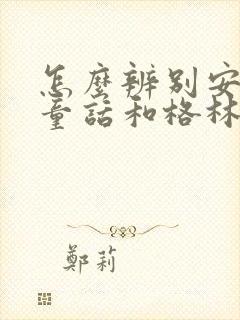 怎麼辨别安
童話和格林
鄭莉